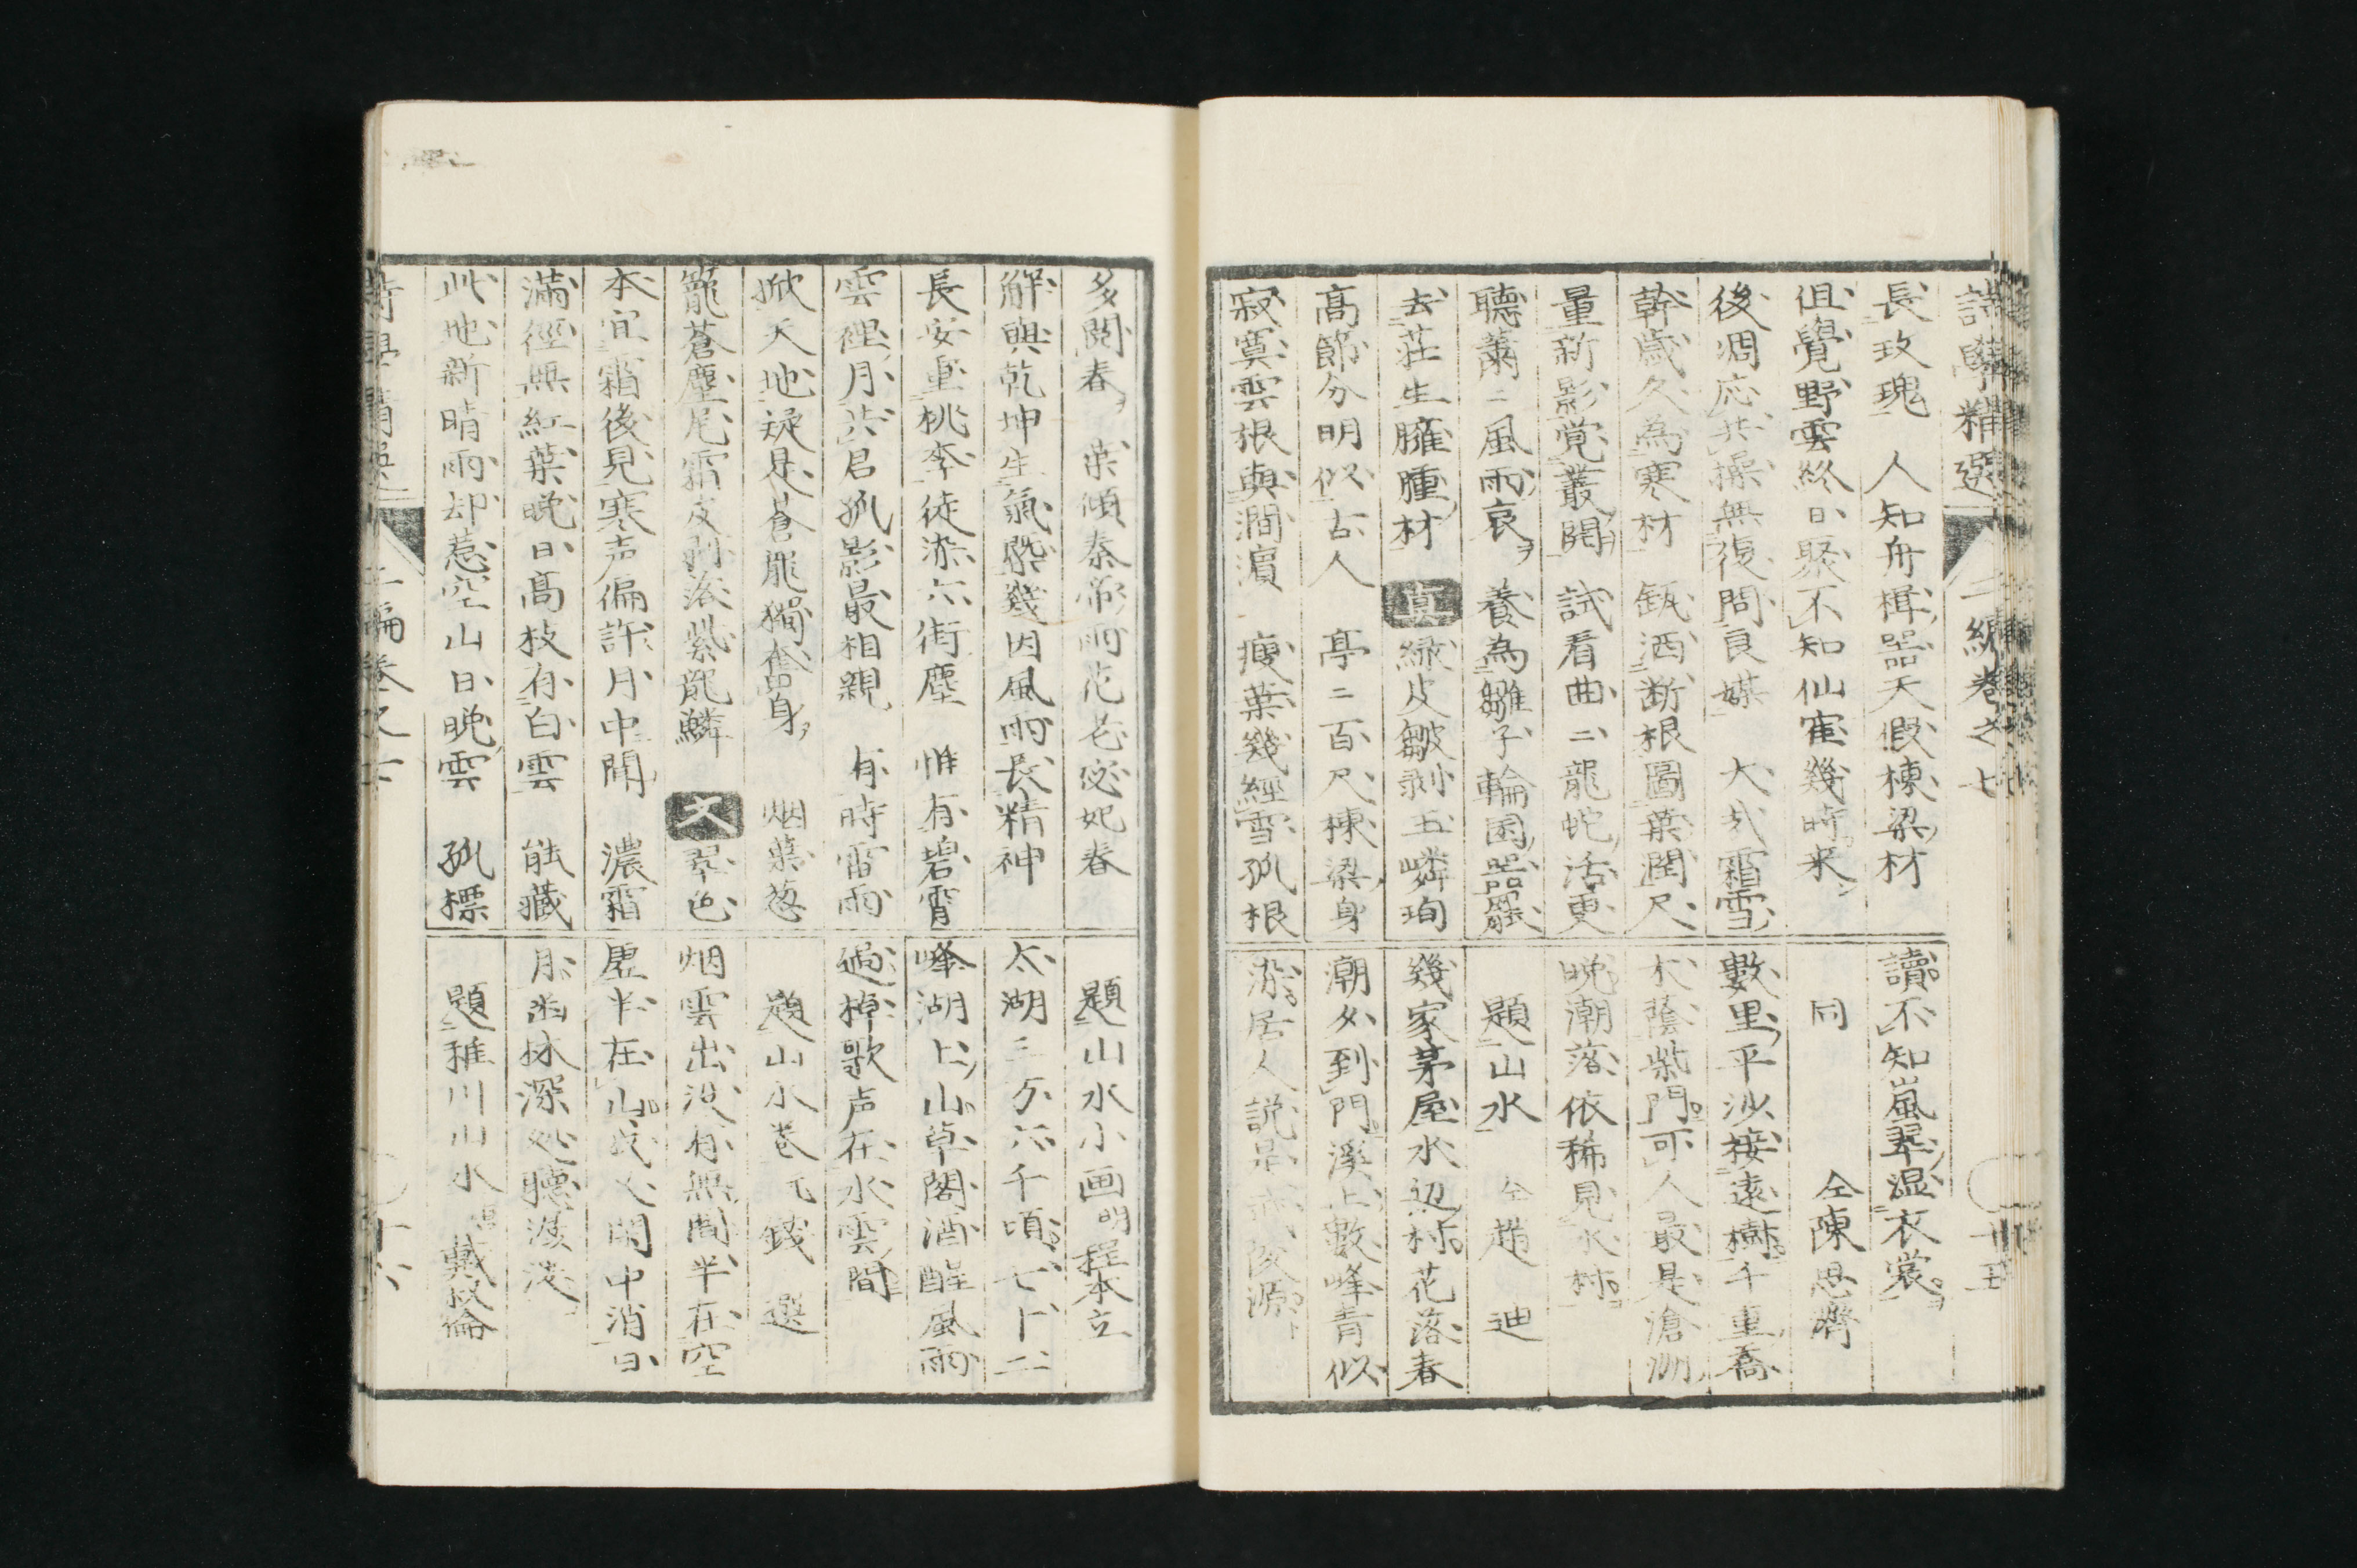 詩學精選 二編卷之七
長玫瑰 人知舟楫器天假棟梁材
但覺野雲終日聚不知仙寉幾時来
後凋応共操無復問良媒 大弐霜雪
幹歳久為寒材 缻洒断根圖葉潤尺
量新影覚叢開 試看曲〻龍蛇活更
聽蕭〻風雨哀 養為雛子輪囷器
去荘生臃腫材 真 緑皮皴剥玉嶙珣
高節分明似古人 亭〻百尺棟梁身
寂寞雲根與澗濵 瘦葉幾經雪孤根
讀不知嵐翠湿衣裳
同 仝陳思齊
數里平沙接遠樹千重喬
木蔭柴門可人最是滄洲
晩潮落依稀見水村
題山水 仝趙 迪
幾家茅屋水辺村花落春
潮夕到門溪上數峰青似
染居人説是武陵源
多閲春 葉傾秦帝雨花老宓妃春
解與乾坤生氣槩幾因風雨長精神
長安重桃李徒染六街塵 惟有碧霄
雲裡月共君孤影最相親 有時雷雨
掀天地疑是蒼龍獨奮身 烟葉葱
籠蒼麈尾霜皮剥落紫龍鱗 文 翠色
本宜霜後見寒声偏許月中聞 濃霜
滿徑無紅葉晩日高枝有白雲 能藏
此地新晴雨却惹空山日晩雲 孤標
題山水小画明程本立
太湖三万六千頃七十二
峰湖上山卓閣酒醒風雨
過棹歌声在水雲間
題山水巻 元錢 選
烟雲出没有無間半在空
虚半在山我閑中消日
月幽林深処聽潺湲
題稚川山水 戴叔倫
二編卷之七
十六